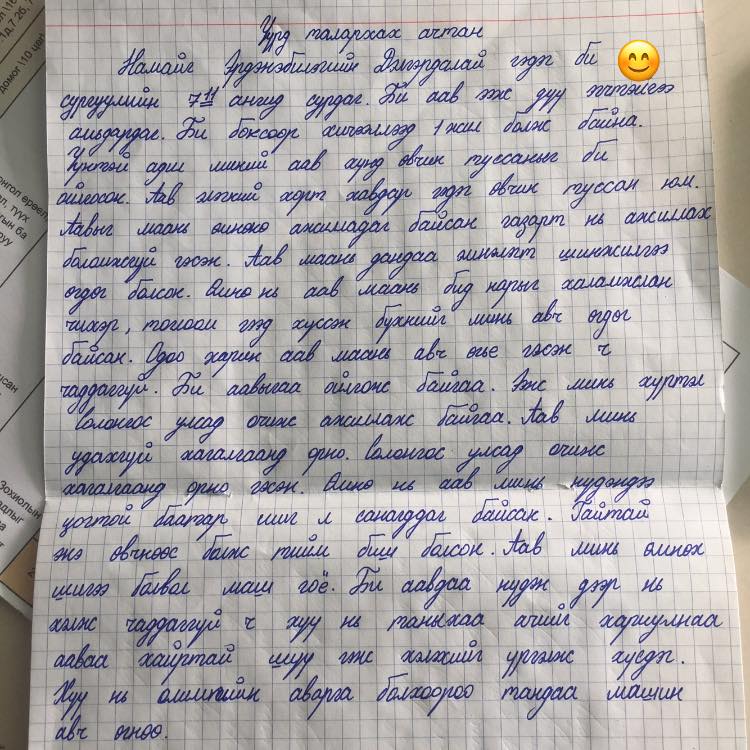 Үүрд талархах ачтан
Намайг Эрдэнэбилэгийн Дэлгэрдалай гэдэг би
сургуулийн 7 11 ангид сурдаг. Би аав ээж дүү эгчтэйгээ
амьдардаг. Би боксоор хичээллээд 1 жил болж байна.
Үүнтэй адил миний аав хүнд өвчин туссаныг би
ойлгосон. Аав элэгний хорт хавдар гэдэг өвчин туссан юм.
Аавыг маань өмнөө ажилладаг байсан газарт нь ажиллах
боломжгүй гэсэн. Аав маань дандаа эмнэлэгт шинжилгээ
өгдөг болсон. Өмнө нь аав маань бид нарыг халамжлан
чихэр, тоглоом гээд хүссэн бүхнийг минь авч өгдөг
байсан. Одоо харин аав маань авч өгье гэсэн ч
чаддаггүй. Би аавыгаа ойлгож байгаа. Ээж минь хүртэл
Солонгос улсад очиж ажиллаж байгаа. Аав минь
удахгүй хагалгаанд орно. Солонгос улсад очиж
хагалгаанд орно гэсэн. Өмнө нь аав минь нүдэндээ
цогтой баатар шиг л санагддаг байсан. Гайтай
энэ өвчнөөс болж тийм биш болсон. Аав минь өмнөх
шигээ болвол маш гоё. Би аавдаа нүдэн дээр нь
хэлж чаддаггүй ч хүү нь таныхаа ачийг хариулнаа
ааваа хайртай шүү гэж хэлэхийг үргэлж хүсдэг.
Хүү нь олимпийн аварга болхоороо тандаа машин
авч өгнөө.